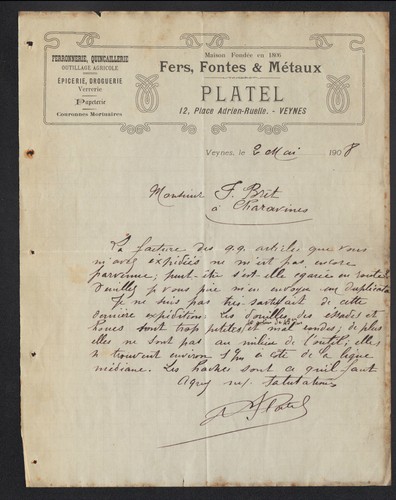 FERRONNERIE, QUINCAILLERIE
OUTILLAGE AGRICOLE
ÉPICERIE, DROGUERIE
Verrerie
Papeterie
Couronnes Mortuaires
Maison Fondée en 1806
Fers, Fontes & Métaux
PLATEL
12, Place Adrien-Ruelle. - VEYNES
Veynes, le 2 Mai 1908
Monsieur F. Bret
à Charavines
La facture des q.q. articles que vous
m'avez expédiés ne m'est pas encore
parvenue; peut-être s'est elle égarée en route
Veuillez je vous prie m'en envoyer un duplicata
Je ne suis pas très satisfait de cette
dernière expédition. Les douilles des
houes sont trop petites et mal rondes; de plus
elles ne sont pas au milieu de l'outil; elles
se trouvent environ à côté de la ligne
médiane. Les haches sont ce qu'il faut
Agréez mes salutations
Platel